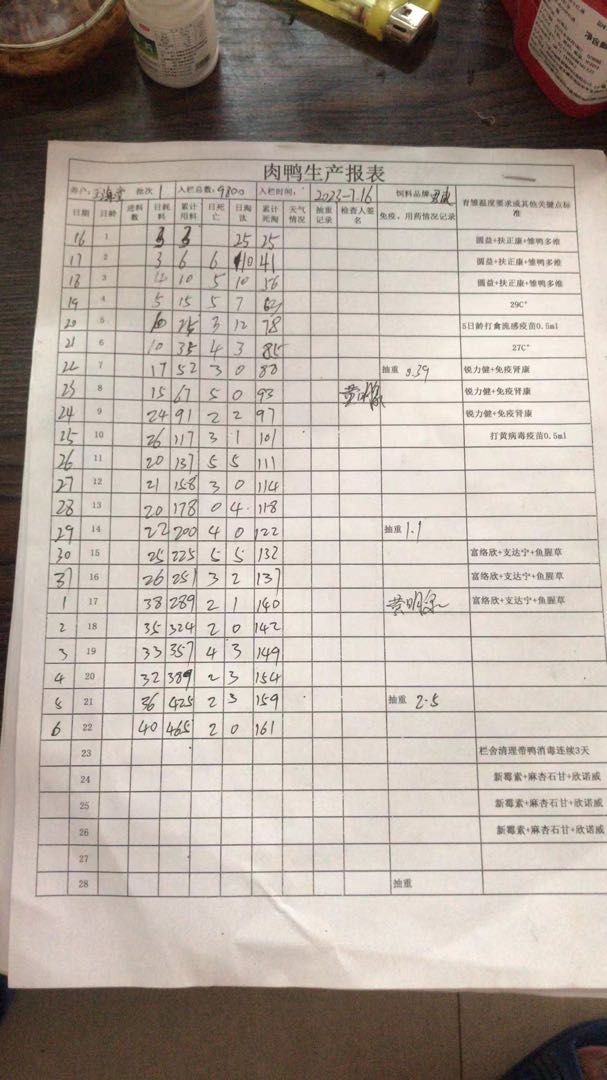 肉鸭生产报表
养户: 批次 1 入栏总数: 9800 入栏时间: 2023-7.16 饲料品牌:
日期 日龄 进料数 日耗料 累计用料 日死亡 日淘汰 累计死淘 天气情况 抽重记录 检查人签名 免疫，用药情况记录 育雏温度要求或其他关键点标准
16 1 3 3 25 25 圆益+扶正康+雏鸭多维
17 2 3 6 6 10 41 圆益+扶正康+雏鸭多维
18 3 10 5 10 56 圆益+扶正康+雏鸭多维
19 4 5 15 5 7 29C°
20 5 10 25 3 12 78 5日龄打禽流感疫苗0.5ml
21 6 10 35 4 3 85 27C°
22 7 17 52 3 0 88 抽重 0.39 锐力健+免疫肾康
23 8 15 67 5 0 93 锐力健+免疫肾康
24 9 24 91 2 2 97 锐力健+免疫肾康
25 10 26 117 3 1 101 打黄病毒疫苗0.5ml
26 11 20 137 5 5 111
27 12 21 158 3 0 114
28 13 20 178 0 4 118
29 14 22 200 4 0 122 抽重 1.1
30 15 25 225 5 5 132 富络欣+支达宁+鱼腥草
31 16 26 251 3 2 137 富络欣+支达宁+鱼腥草
1 17 38 289 2 1 140 富络欣+支达宁+鱼腥草
2 18 35 324 2 0 142
3 19 33 357 4 3 149
4 20 32 389 2 3 154
5 21 36 425 2 3 159 抽重 2.5
6 22 40 465 2 0 161
23 栏舍清理带鸭消毒连续3天
24 新霉素+麻杏石甘+欣诺威
25 新霉素+麻杏石甘+欣诺威
26 新霉素+麻杏石甘+欣诺威
27
28 抽重